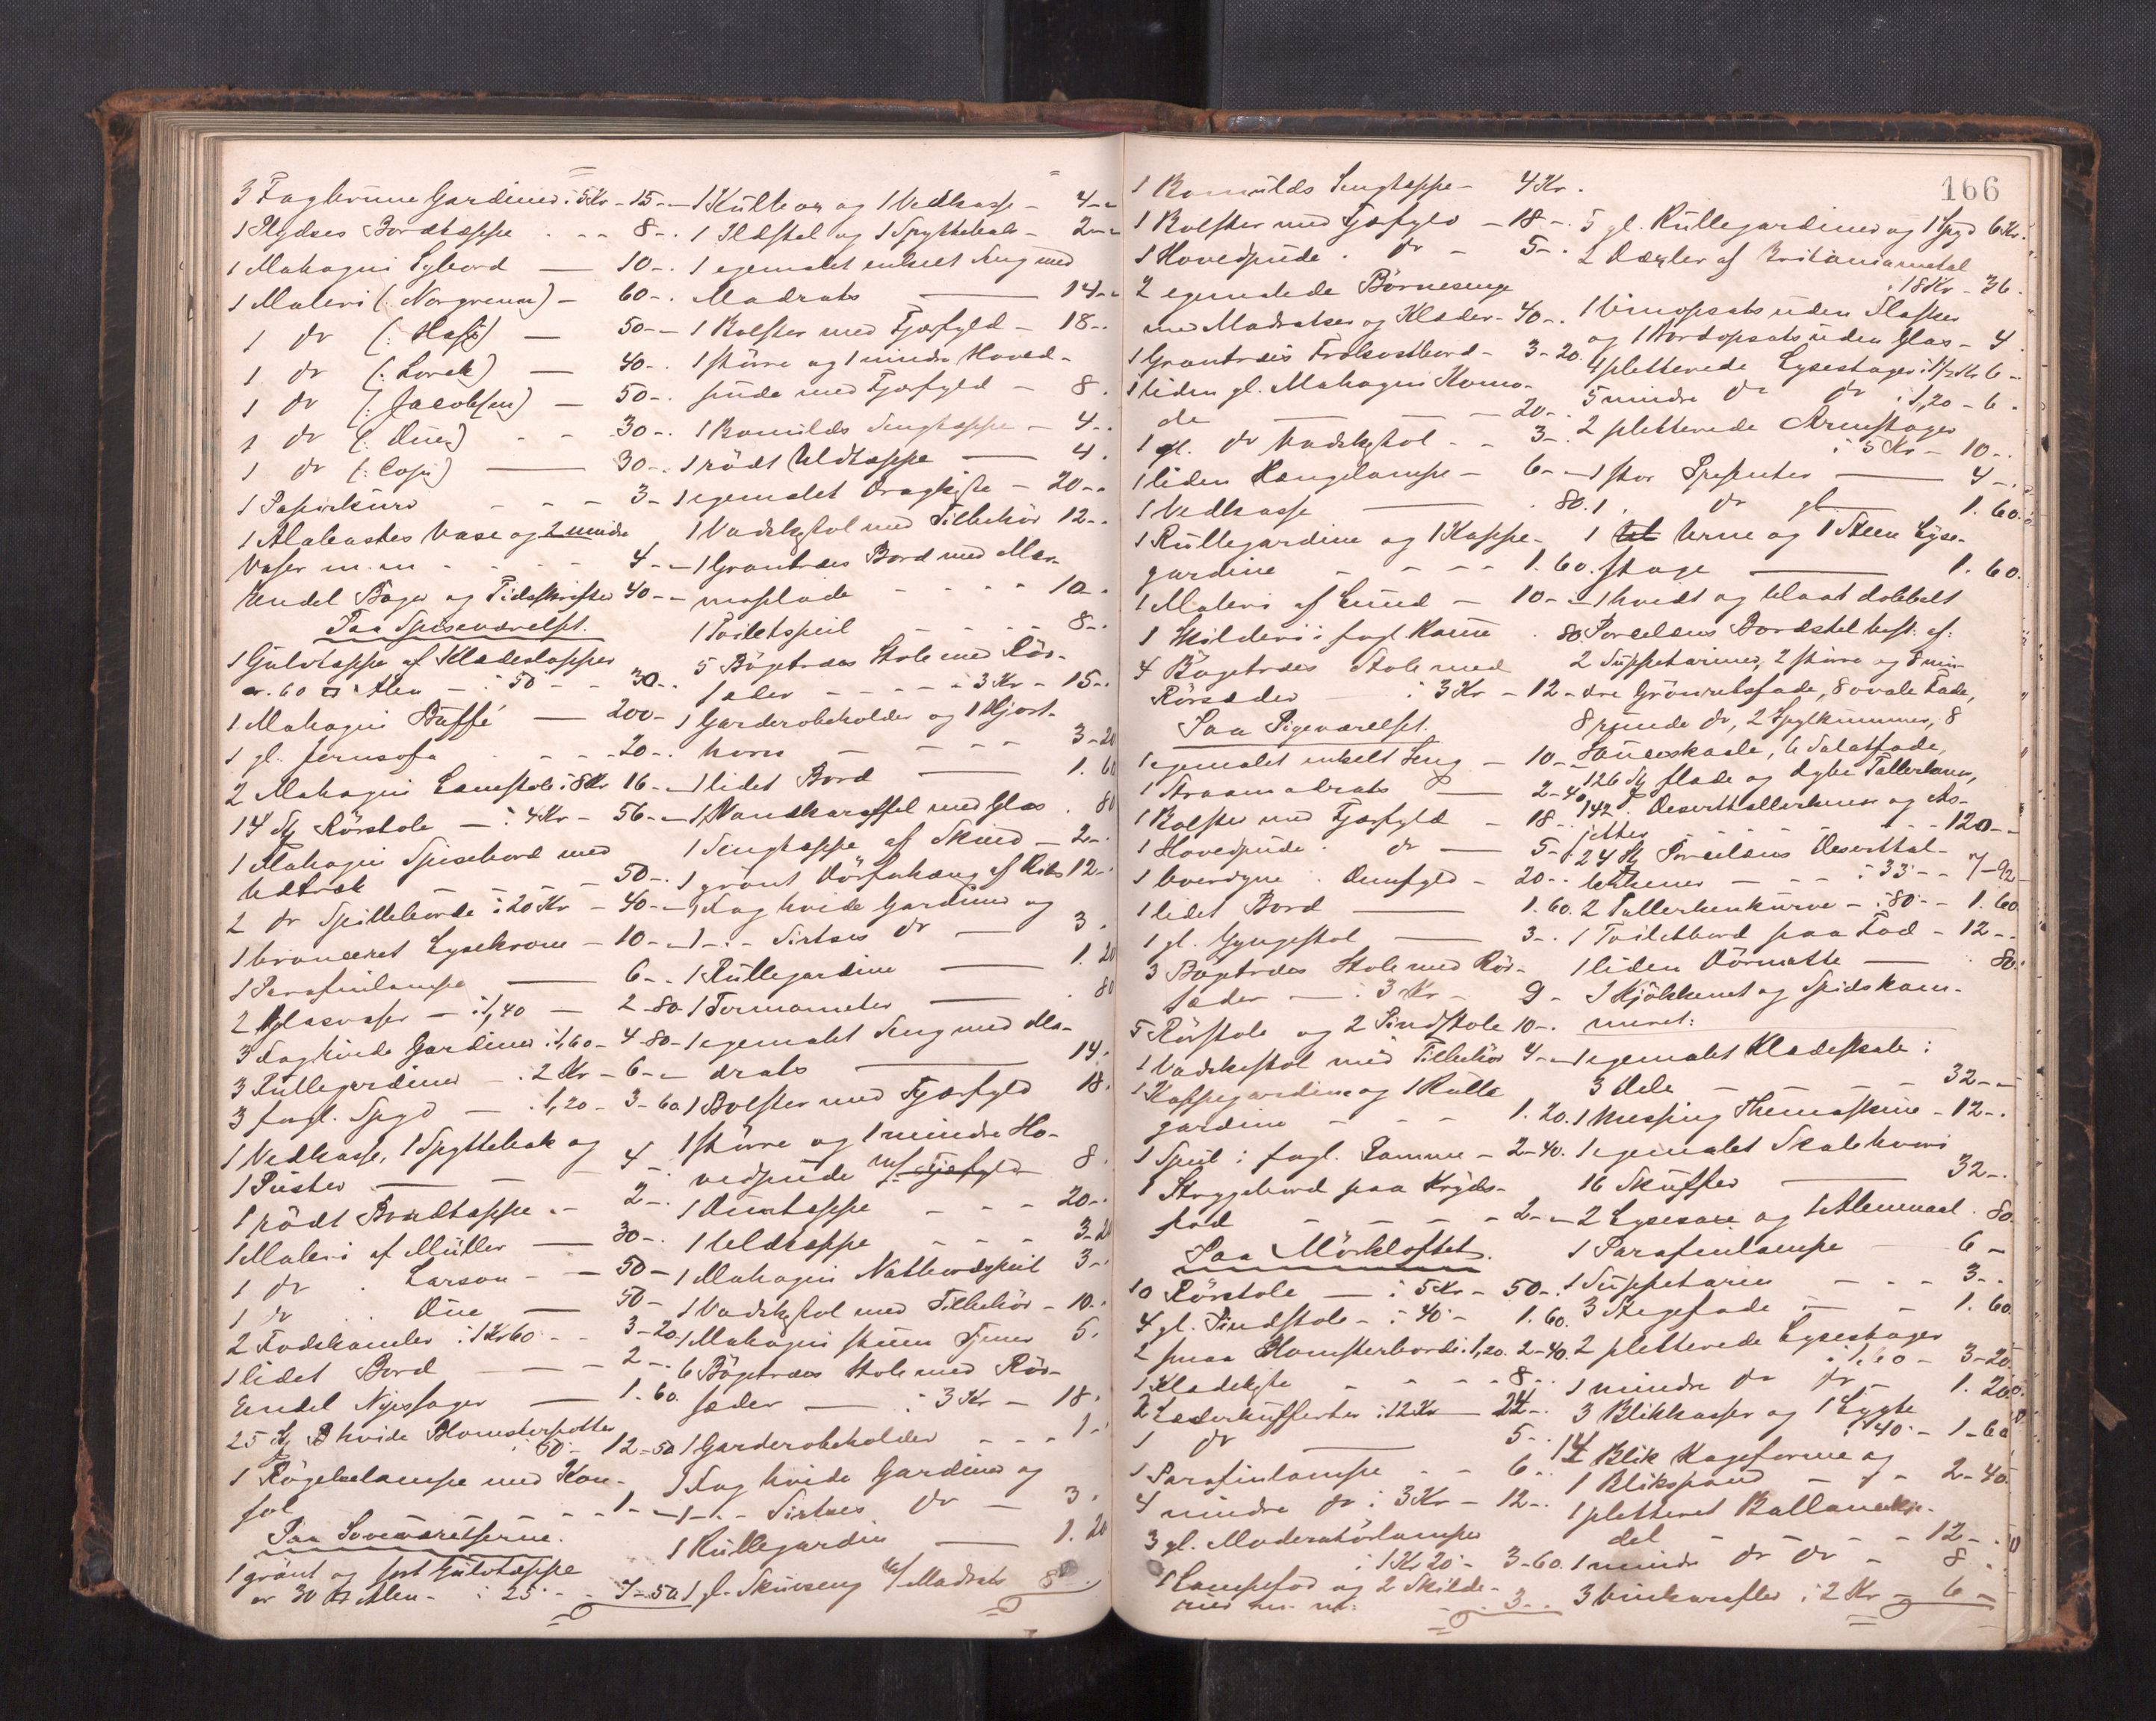 3 Fag brune Gardiner i 5 Kr - 15 -
1 Plydses Bordtæppe - - - 8 - .
1 Mahagni Sybord — 10 - .
1 Maleri (: Norgrenn) - 60 - .
1 dr (: Hass) — 50 -
1 dr (: Lorck) — 40 - .
1 dr (: Jacobsen) — 50 - .
1 dr (: Due) - - 30 - .
1 dr (: Copi) — 30 - .
1 Papirkurv - - - 3 -
1 Alabastes Vase og 2 mindre
Vaser m. m - - - - 4 -
Endel Bøger og Tidsskrifter 40 -
Paa Spiseværelset.
1 Gulvtæppe af Klædeslapper
cr. 60 □ Alen - i 50 - - 30 - .
1 Mahagni Buffé — 200 -
1 gl. Jernsofa - - - 20 - .
2 Mahagni Lænstole i 8 Kr 16 -
14 St Rörstole — i 4 Kr - 56 -
1 Mahagni Spisebord med
Udtræk - - - - 50 - .
2 dr Spilleborde i 20 Kr - 40 -
1 bronceret Lysekrone - 10 -
1 Parafinlampe — 6 - .
2 Glasvaser - i 1,40 - 2 - 80
3 Fag hvide Gardiner i 1,60 - 4 - 80
3 Rullegardiner - i 2 Kr - 6 -
3 forgl. Spyd - i 1,20 - 3 - 60
1 Vedkasse, 1 Spyttebak og
1 Puster — - 4 - .
1 rödt Bordtæppe - - 2 - .
1 Maleri af Müller — 30 - .
1 dr . Larson - - 50 -
1 dr . Due — 50 -
2 Fodskamler i 1 Kr 60 - - 3 - 20
1 lidet Bord - - 2 - .
Endel Nipssager — 1. 60.
25 St hvide Blomsterpotter
i 50 - 12 - 50
1 Rögelselampe med Kon-
sol - - - - - 1 -
Paa Soveværelserne.
1 grönt og sort Gulvtæppe
cr 30 □ Alen - i 25 - - 7 - 50
1 Kulbox og 1 Vedkasse - 4 -
1 Ildstel og 1 Spyttebak - 2 -
1 egemalet enkelt Seng med
Madrats — 14 -
1 Bolster med Fjærfyld - 18 - .
1 større og 1 mindre Hoved-
pude med Fjærfyld - 8 .
1 Bomulds Sengtæppe - 4 - .
1 rödt Uldtæppe — 4 .
1 egemalet Dragkiste - 20 - .
1 Vadskestol med Tilbehör 12 - .
1 Grantræes Bord med Mar-
morplade - - - - 10 - .
1 Toiletspeil - - - - 8 - .
5 Bögetræes Stole med Rör-
sæder - - - - i 3 Kr - 15 - .
1 Garderobeholder og 1 Hjort-
horn - - - - 3 - 20
1 lidet Bord — 1. 60
1 Vandkaraffel med Glas . 80
1 Sengtæppe af Skind - 2 - .
1 grönt Dörforhæng af Ribs 12 - .
1 Fag hvide Gardiner og
1 - . - Sirtses dr — 3 .
1 Rullegardine — 1. 20
1 Termometer — . 80
1 egemalet Seng med Ma-
drats — 14 .
1 Bolster med Fjærfyld 18 .
1 större og 1 mindre Ho-
vedpude m/ Fjærfyld 8 .
1 Duntæppe - - - 20 - .
1 Uldtæppe - - - 3 - 20
1 Mahagni Natbordspeil 3 - .
1 Vadskestol med Tilbehör - 10 - .
1 Mahagni stum Tjener 5 .
6 Bögetræes Stole med Rör-
sæder — i 3 Kr - 18 .
1 Garderobeholder - - - 1 -
1 Fag hvide Gardiner og
1 - . - Sirtses dr - 3 .
1 Rullegardin — 1. 20
1 gl. Skuvseng m/ Madrats 8
166
1 Bomulds Sengtæppe - 4 Kr .
1 Bolster med Fjærfyld - 18 - .
1 Hovedpude . dr - 5 - .
2 egemalede Börnesenge
med Madratser og Klæder - 40 - .
1 Grantræes Frokostbord - 3 - 20.
1 liden gl. Mahagni Komo-
de — 20 - .
1 gl. dr Vadskestol - - 3 - .
1 liden Hængelampe - 6 -
1 Vedkasse — . 80.
1 Rullegardine og 1 Kappe-
gardine - - - - 1. 60.
1 Maleri af Lund - 10 -
1 Skilderi i forgl. Ramme . 80.
4 Bögetræes Stole med
Rörsæder - i 3 Kr - 12 -
Paa Pigeværelset.
1 egemalet enkelt Seng - 10 -
1 Straamadrats - 2 - 40
1 Bolster med Fjærfyld - 18 - .
1 Hovedpude . dr — 5 -
1 Overdyne . Dunfyld - 20 - .
1 lidet Bord — 1. 60.
1 gl. Gyngestol — 3 - .
3 Bögetræes Stole med Rör-
sæder — i 3 Kr - 9 -
5 Rörstole og 2 Pindstole 10 - .
1 Vadskestol med Tilbehör 4 -
1 Kappegardine og 1 Rulle
gardine - - - 1. 20.
1 Speil i forgl. Ramme - 2 - 40.
1 Strygebord paa Kryds-
fod - - - - 2 -
Paa Mörkloftet.
10 Rörstole — i 5 Kr - 50 - .
4 gl. Pindstole - i 40 - 1. 60.
2 smaa Blomsterborde i 1,20. 2 - 40.
1 Klædekiste - - - - 8 - .
2 Læderkufferter i 12 Kr - 24 - .
1 dr — 5 - .
1 Parafinlampe - - 6 - .
4 mindre dr i 3 Kr - 12 - .
3 gl. Moderatörlamper
i 1 Kr 20 - 3 - 60.
1 Lampefod og 2 Skilde-
rier m. m. - 3 - .
5 gl. Rullegardiner og 1 Spyd 6 Kr.
2 Dæxler af Britaniametal
i 18 Kr - 36 .
1 Vinopsats uden Flasker
og 1 Bordopsats uden Glas - 4 .
4 pletterede Lysestager i 1½ Kr 6 -
5 mindre dr dr i 1,20 - 6 .
2 pletterede Armstager
i 5 Kr - 10 - .
1 stor Presenter — 4 - .
1 . dr gl. — 1. 60.
1 Urne og 1 Steen Lyse-
stage — 1. 60.
1 hvidt og blaat dobbelt
Porcelæns Bordstel best. af:
2 Suppeteriner, 2 större og 8 min-
dre Grönsatsfade, 8 ovale Fade,
8 runde dr, 2 Spylkummer, 8
Sauceskaale, 6 Salatfade,
126 St flade og dybe Tallerkener,
142 . Deserttallerkener og As-
jetter - - - - - 120 -
24 St Porcelæns Deserttal-
lerkener - - - i 33 - - 7 - 92 -
2 Tallerkenkurve - i 80 - - 1. 60
1 Toiletbord paa Fod - 12 - .
1 liden Dörmatte — . 80.
I Kjökkenet og Spidskam-
meret:
1 egemalet Klædeskab i
3 Dele - - - - 32 -
1 Messing Themaskine - 12 - .
1 egemalet Skab hvori
16 Skuffer — 32 - .
2 Lysesaxe og 1 Alenmaal . 80
1 Parafinlampe - 6 -
1 Suppeterin - - - 3 - .
3 Stegefade - - 1. 60.
2 pletterede Lysestager
i 1,60 - 3 - 20.
1 mindre dr dr - 1. 20.
3 Blikkasser og 1 Lygte
i 40 - 1 - 60
14 Blik Kageforme og
1 Blikspand - - - 2 - 40.
1 pletteret
del - - - - 12 - .
1 mindre dr dr - 8 - .
3 Vinkarafler i 2 Kr - 6 -